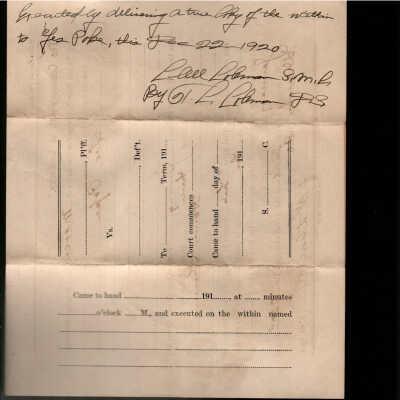 Executed by delivering a true Copy of the within
to Yes Poke, this Dec 22 1920
Coleman S.M.C.
By L. Coleman D.S.
Pl'ff.
Vs.
Def't.
To Term, 191
Court commences
Came to hand day of
191
S. C.
Came to hand 191 , at minutes
o'clock M., and executed on the within named